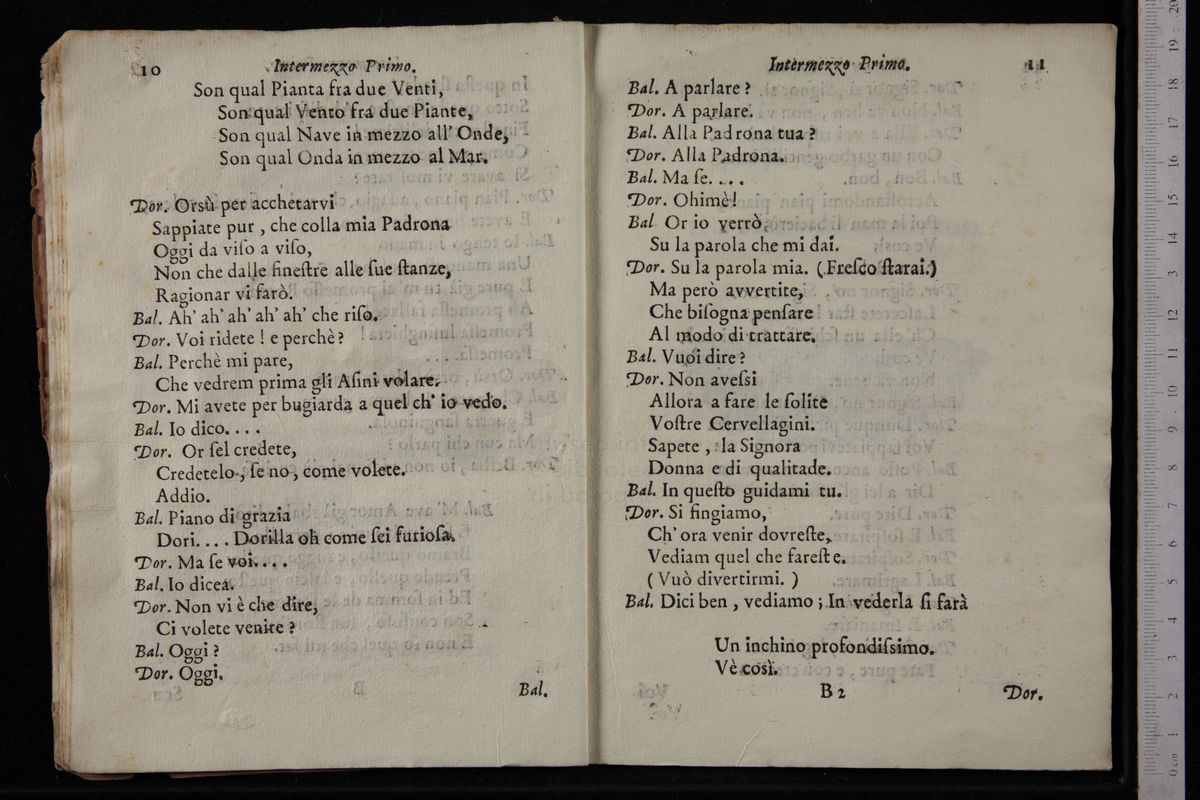 10 Intermezzo Primo.
Son qual Pianta fra due Venti,
Son qual Vento fra due Piante,
Son qual Nave in mezzo all' Onde,
Son qual Onda in mezzo al Mar.
Dor. Orsù per acchetarvi
Sappiate pur , che colla mia Padrona
Oggi da viſo a viſo,
Non che dalle fineſtre alle ſue ſtanze,
Ragionar vi farò.
Bal. Ah' ah' ah' ah' ah' che riſo.
Dor. Voi ridete ! e perchè ?
Bal. Perchè mi pare,
Che vedrem prima gli Aſini volare.
Dor. Mi avete per bugiarda a quel ch' io vedo.
Bal. Io dico. . . .
Dor. Or ſel credete,
Credetelo , ſe no , come volete.
Addio.
Bal. Piano di grazia
Dori. . . . Dorilla oh come ſei furioſa.
Dor. Ma ſe voi. . . .
Bal. Io dicea.
Dor. Non vi è che dire,
Ci volete venire ?
Bal. Oggi ?
Dor. Oggi.
Bal.
Intermezzo Primo. 11
Bal. A parlare ?
Dor. A parlare.
Bal. Alla Padrona tua ?
Dor. Alla Padrona.
Bal. Ma ſe. . . .
Dor. Ohimè !
Bal Or io verrò,
Su la parola che mi dai.
Dor. Su la parola mia. ( Freſco ſtarai. )
Ma però avvertite,
Che biſogna penſare
Al modo di trattare.
Bal. Vuoi dire ?
Dor. Non aveſsi
Allora a fare le ſolite
Voſtre Cervellagini.
Sapete , la Signora
Donna e di qualitade.
Bal. In queſto guidami tu.
Dor. Si fingiamo,
Ch' ora venir dovreſte,
Vediam quel che fareſte.
( Vuò divertirmi. )
Bal. Dici ben , vediamo ; In vederla ſi farà
Un inchino profondiſsimo.
Vè così.
B 2 Dor.